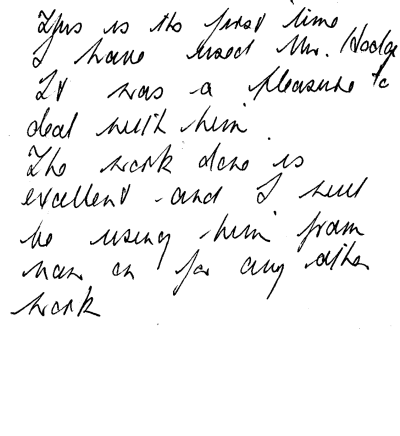 This is the first time
I have used Mr. Hodge
It was a pleasure to
deal with him
The work done is
excellent and I will
be using him from
now on for any other
work